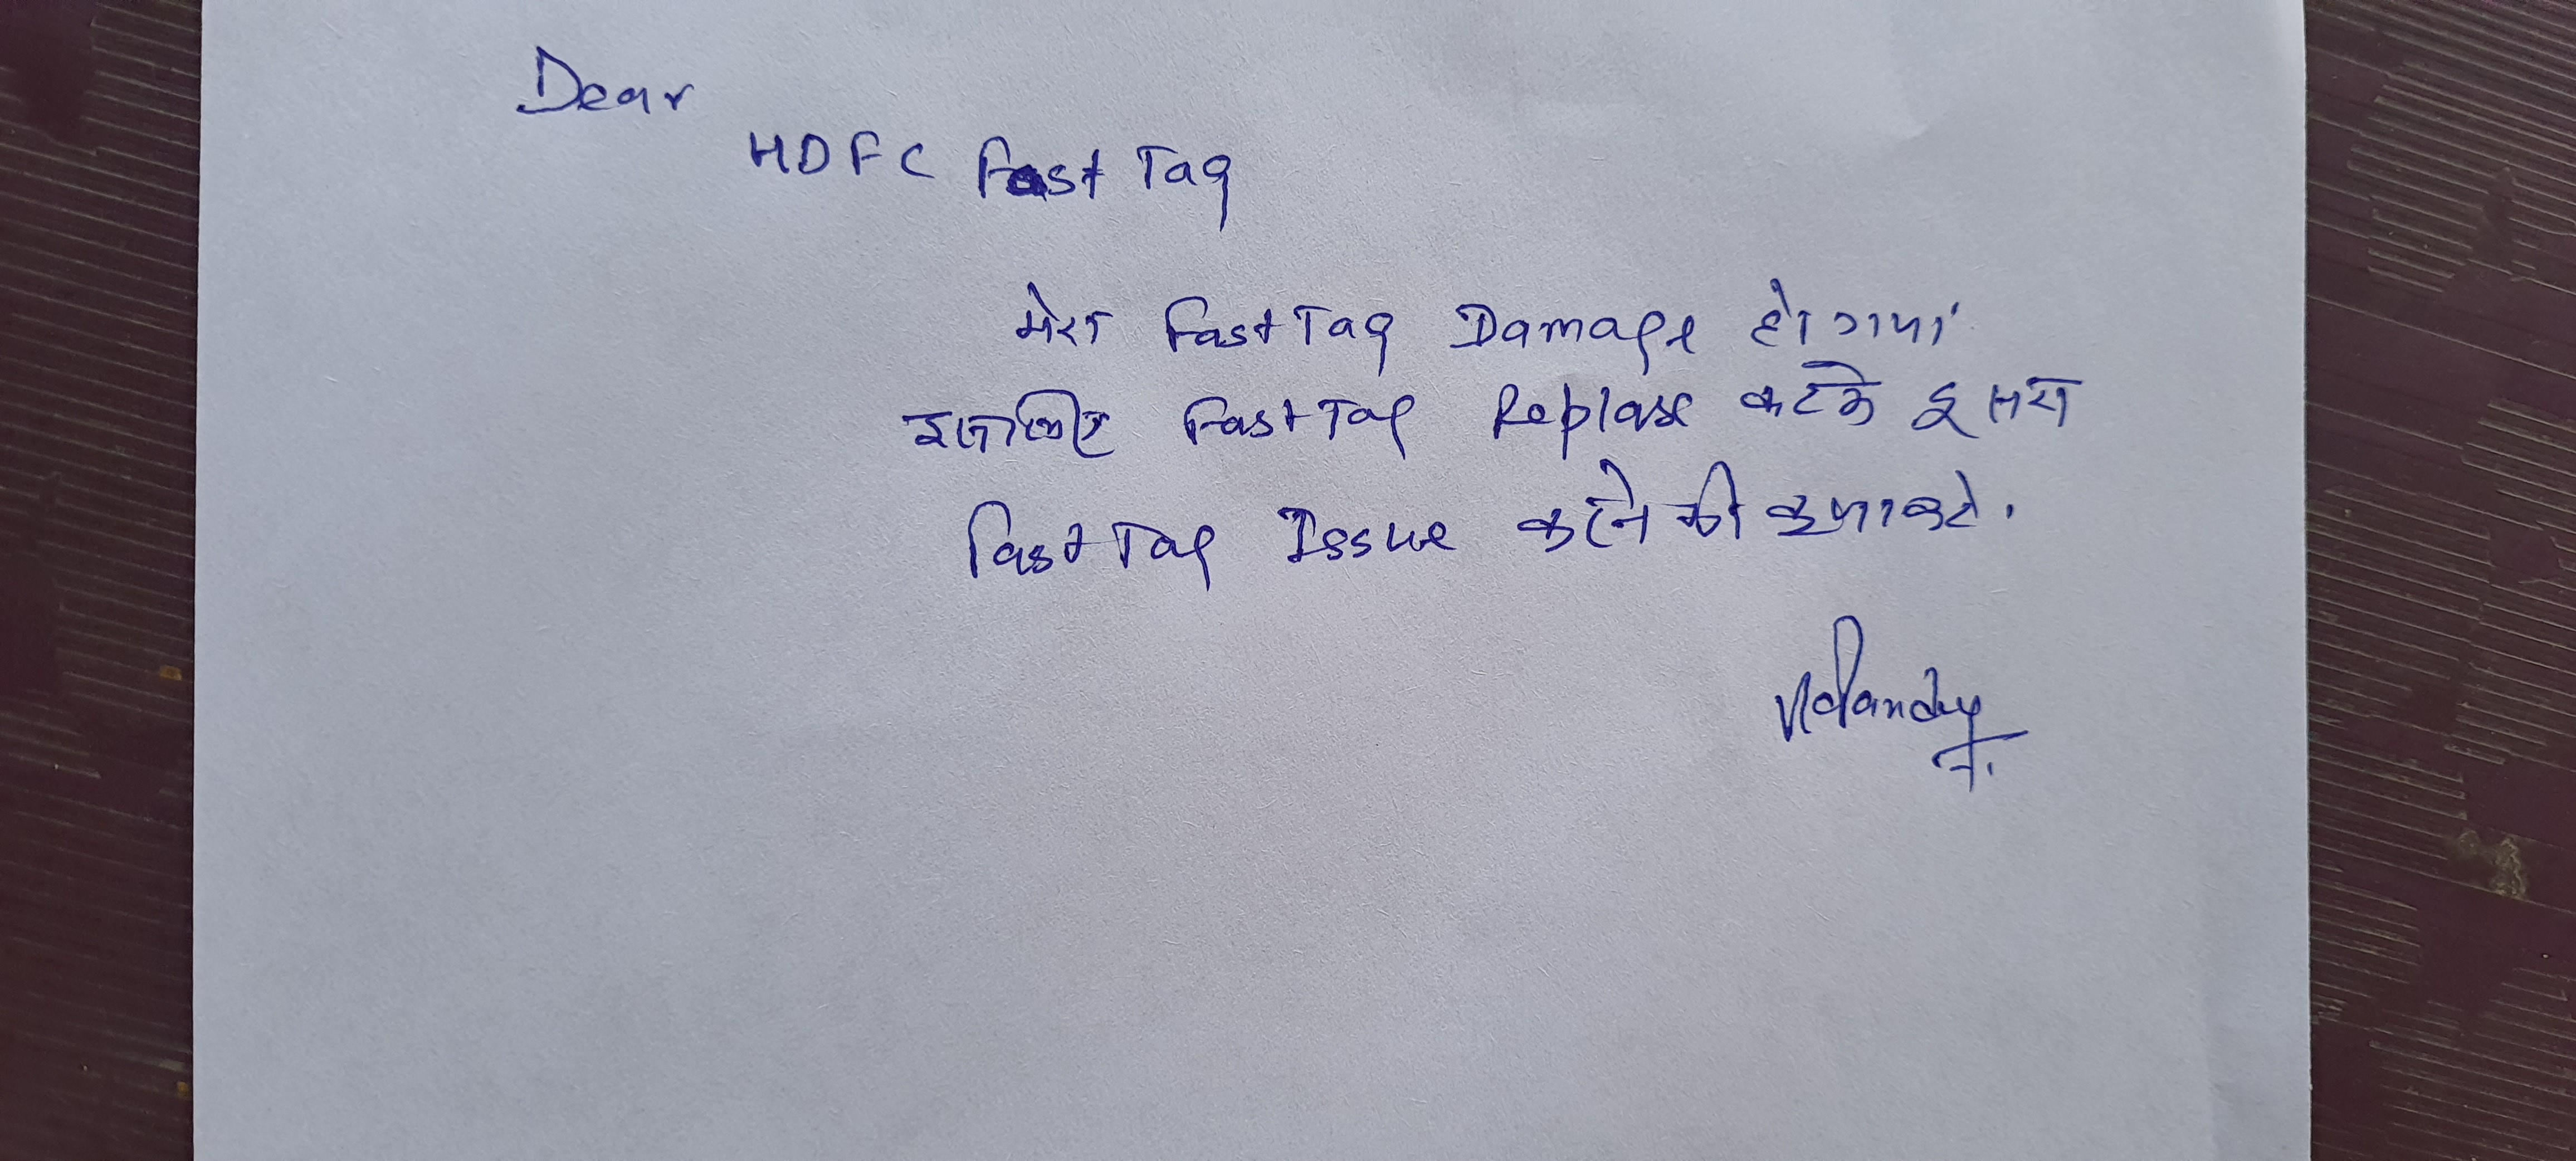 Dear
HDFC Fast Tag
मेरा Fast Tag Damage हो गया
इसलिए Fast Tag Replase करके दुसरा
Fast Tag Issue करने की कृपा करे.